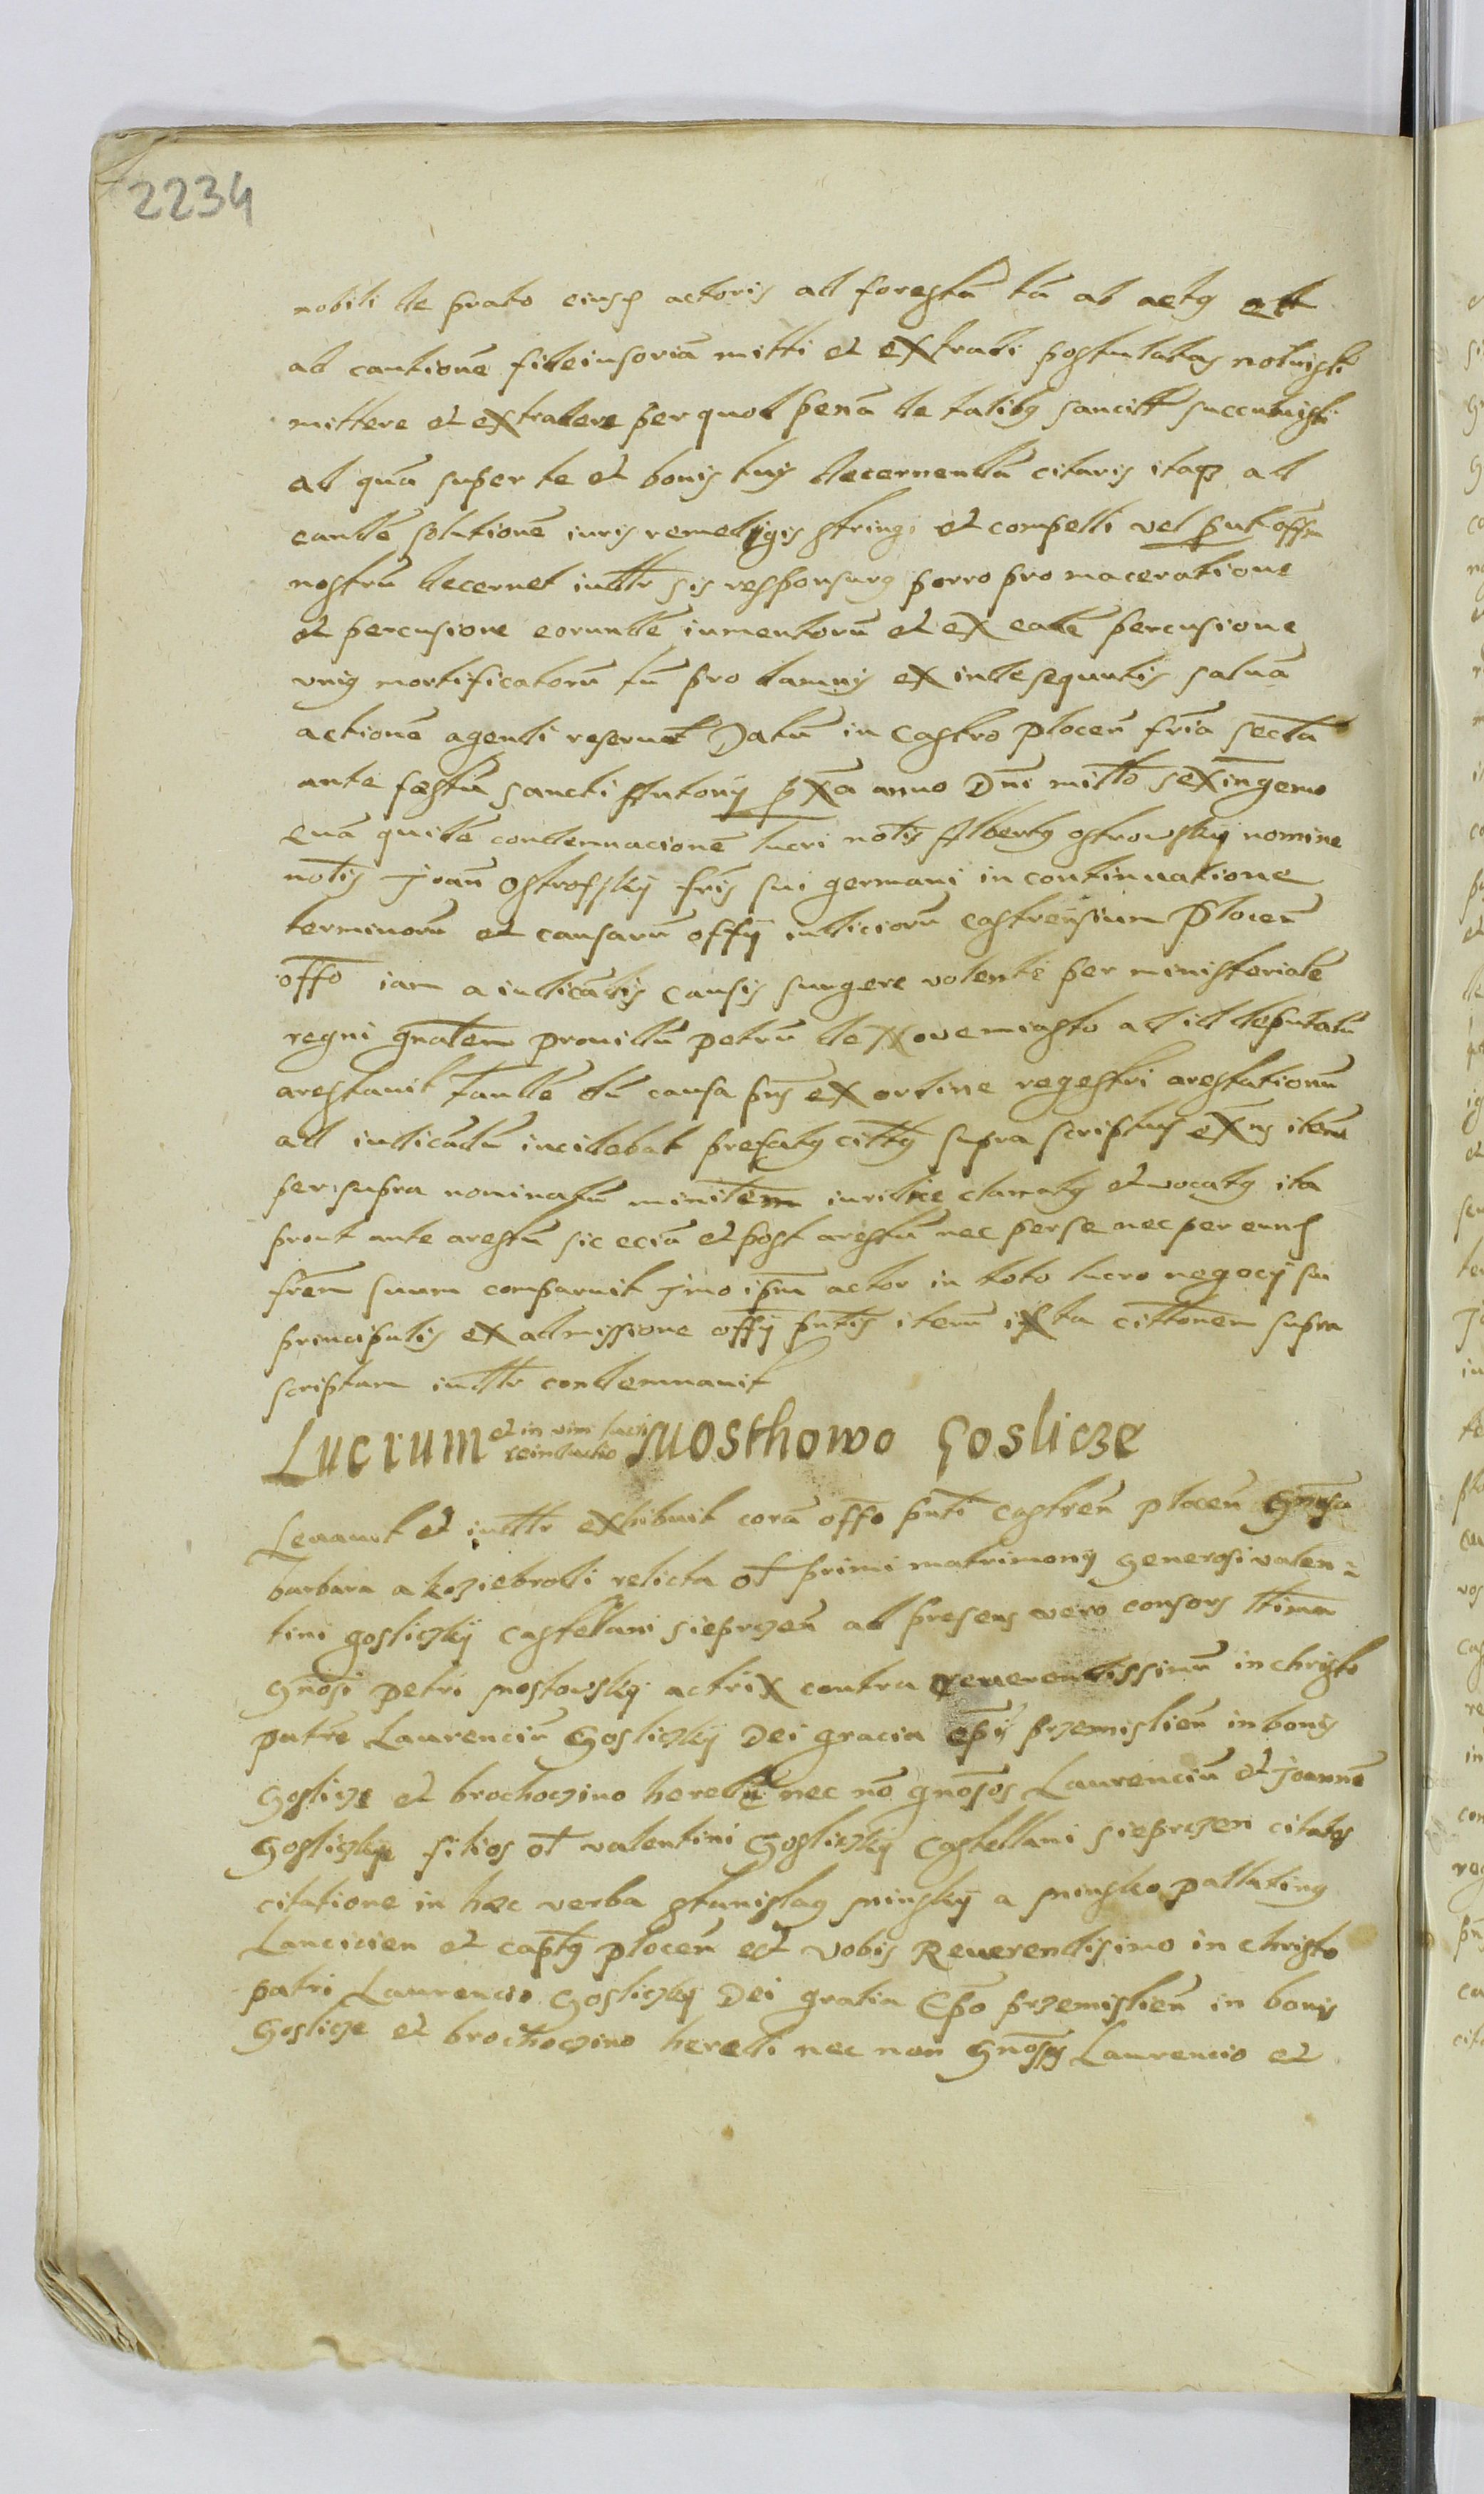 2234
nobili de prato eiusd actoris ad forestū tā ab actq alt
ad cautionē fideiusoriā mitti et extradi postulatas noluisti
mittere et extradere per quod penā de talibq succubuisti
ad quā super te et bonis tuis decernendā citaris itaqz ad
eandē solutionē iuris remedijs stringi et compelli vel put offm
nostrū decernet iudtr sis responsurq porro pro maceratione
et percusione eorundē iumentorū et ex eadē percusione
vniq mortificatorū tū pro damnis exinde sequutis saluā
actionē agenti reseruat Datū in Castro plocen̄ fria secta
ante festū sancti Antonij pxa anno Dni millo sexingemo
quā quidē condemnacionē lucri nolis Albertq ostrowskij nomine
nolis Joan̄ Ostrofskij fris sui germani in continuatione
terminorū et causarū offij iudiciorū castrensium Plocen̄
offo iam a iudicādis causis surgere volente per ministerialē
regni gnalem prouidū petrū de Nowemiasto ad id deputatū
arestauit Tandē dū causa pns ex ordine regestri arestationū
ad iudicādū incidebat prefatq cittq supra scriptus exns iterū
per supra nominatū minilem iuridice clamatq et vocatq ita
prout ante arestū sic eciā et post arestū nec per se nec per eund
frem suum comparuit imo ipm actor in toto lucro negocij sui
principalis ex admissione offij pntis iterū ixta cittonem supra
scriptam iudtr condemnauit
Lucrum et in vim lucri reinductio Mosthowo Goslicze
Leuauit et iudtr exhibuit corā offo pnti castren̄ plocen̄ Gnosa
barbara a koziebrodi relicta ol primi matrimonij Generosi valen=
tini goslickij castellani sieprcen̄ ad presens vero consors ltima
Gnosi petri mostowskij actrix contra reuerendissimū in christo
patrē Laurenciū Goslickij Dei gracia epi przemislien̄ in bonis
Goslicze et brochoczino heredē nec nō gnosos Laurenciū et Joannē
Goslickije filios ol valentini Goslickij castellani sieprcen citatos
citatione in hæc verba stanislaq minskij a minsko pallatinq
Lancicien et captq plocen̄ ect vobis Reuerendisimo in christo
patri Laurencio Goslickij Dei gratia Epo przemislien̄ in bonis
Goslicze et brochoczino heredi nec non Gnosis Laurencio et